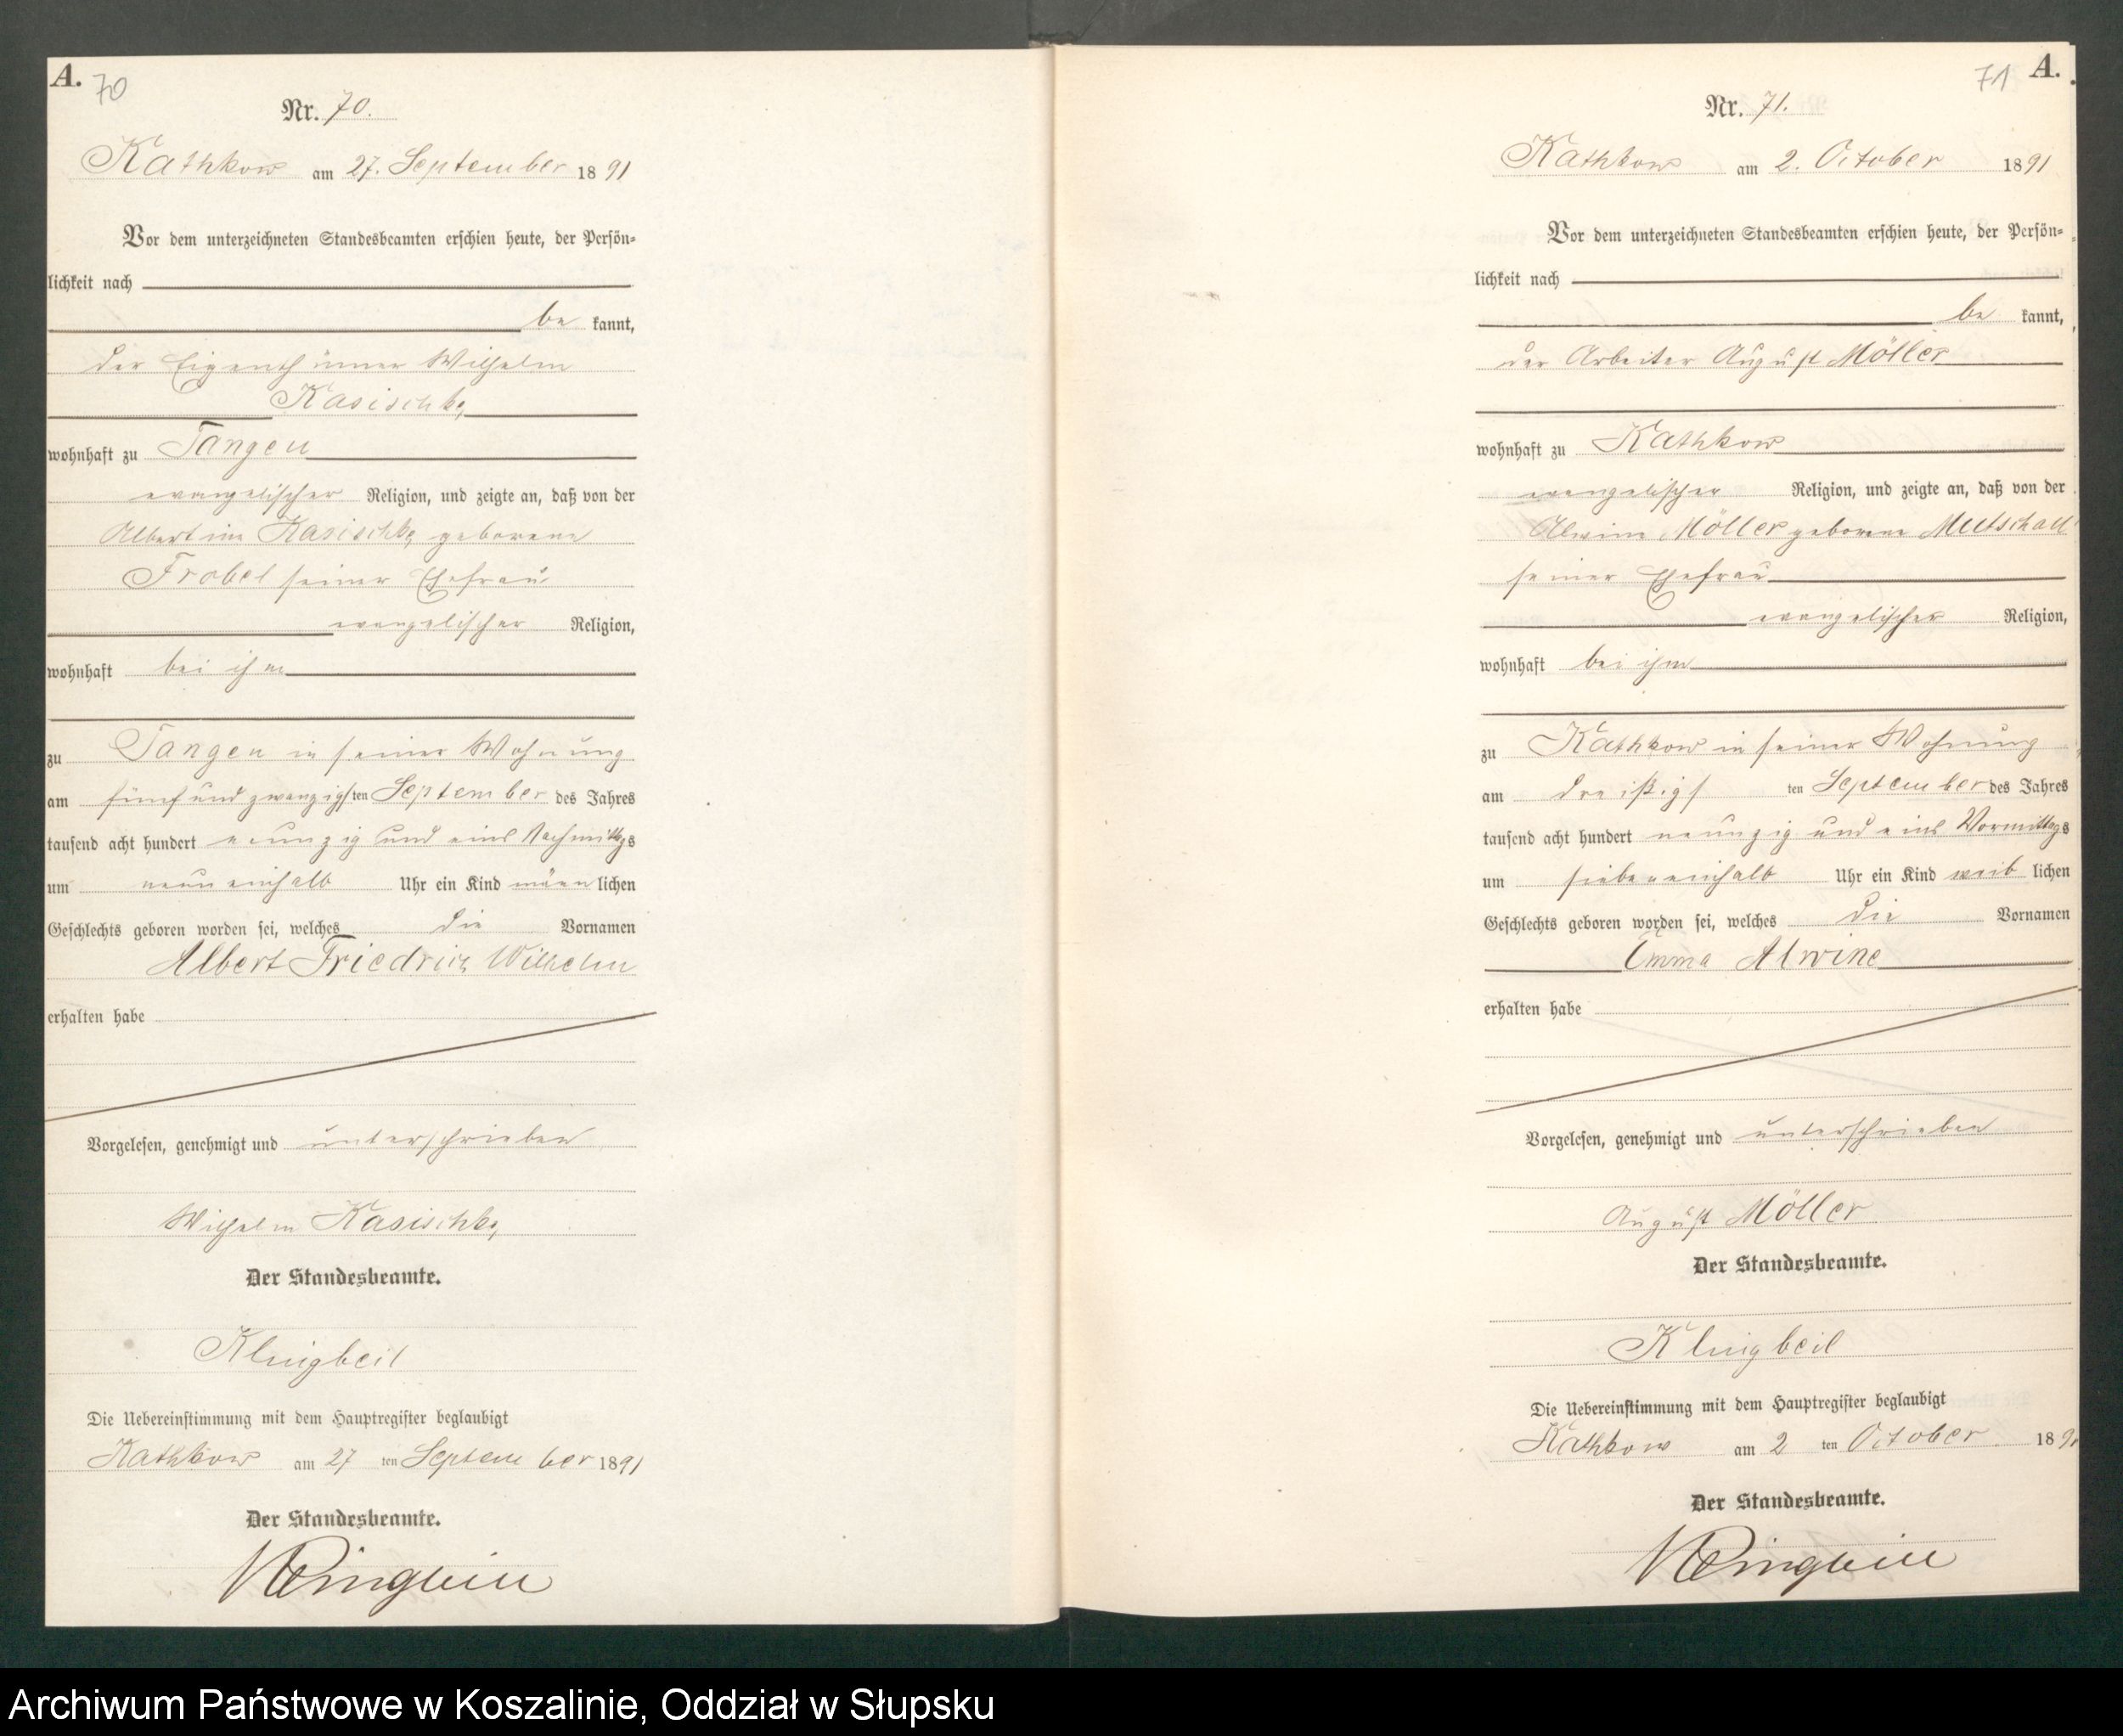 A.
70
Nr. 70.
Kathkow am 27. September 1891
Vor dem unterzeichneten Standesbeamten erschien heute, der Persön-
lichkeit nach
be kannt,
der Eigenthümer Wilhelm
Kasischke
wohnhaft zu Tangen
evangelischer Religion, und zeigte an, daß von der
Albertine Kasischke geborene
Frobel seiner Ehefrau
evangelischer Religion,
wohnhaft bei ihm
zu Tangen in seiner Wohnung
am fünf und zwanzigsten September des Jahres
tausend acht hundert neunzig und eins Nachmittags
um neun einhalb Uhr ein Kind männlichen
Geschlechts geboren worden sei, welches die Vornamen
Albert Friedrich Wilhelm
erhalten habe
Vorgelesen, genehmigt und unterschrieben
Wilhelm Kasischke
Der Standesbeamte.
Klingbeil
Die Uebereinstimmung mit dem Hauptregister beglaubigt
Kathkow am 27 ten September 1891
Der Standesbeamte.
Klingbeil
71 A.
Nr. 71.
Kathkow am 2. October 1891
Vor dem unterzeichneten Standesbeamten erschien heute, der Persön-
lichkeit nach
be kannt,
der Arbeiter August Möller
wohnhaft zu Kathkow
evangelischer Religion, und zeigte an, daß von der
Alwine Möller geborene Mutschall
seiner Ehefrau
evangelischer Religion,
wohnhaft bei ihm
zu Kathkow in seiner Wohnung
am dreißigsten September des Jahres
tausend acht hundert neunzig und eins Vormittags
um sieben einhalb Uhr ein Kind weiblichen
Geschlechts geboren worden sei, welches die Vornamen
Emma Alwine
erhalten habe
Vorgelesen, genehmigt und unterschrieben
August Möller
Der Standesbeamte.
Klingbeil
Die Uebereinstimmung mit dem Hauptregister beglaubigt
Kathkow am 2 ten October 1891
Der Standesbeamte.
Klingbeil
Archiwum Państwowe w Koszalinie, Oddział w Słupsku